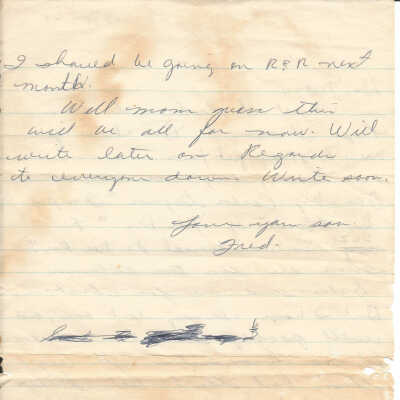 I should be going on R&R next
month.
Well mom guess this
will be all for now. Will
write later on. Regards
to everyone down. Write soon.
Your son.
Fred.